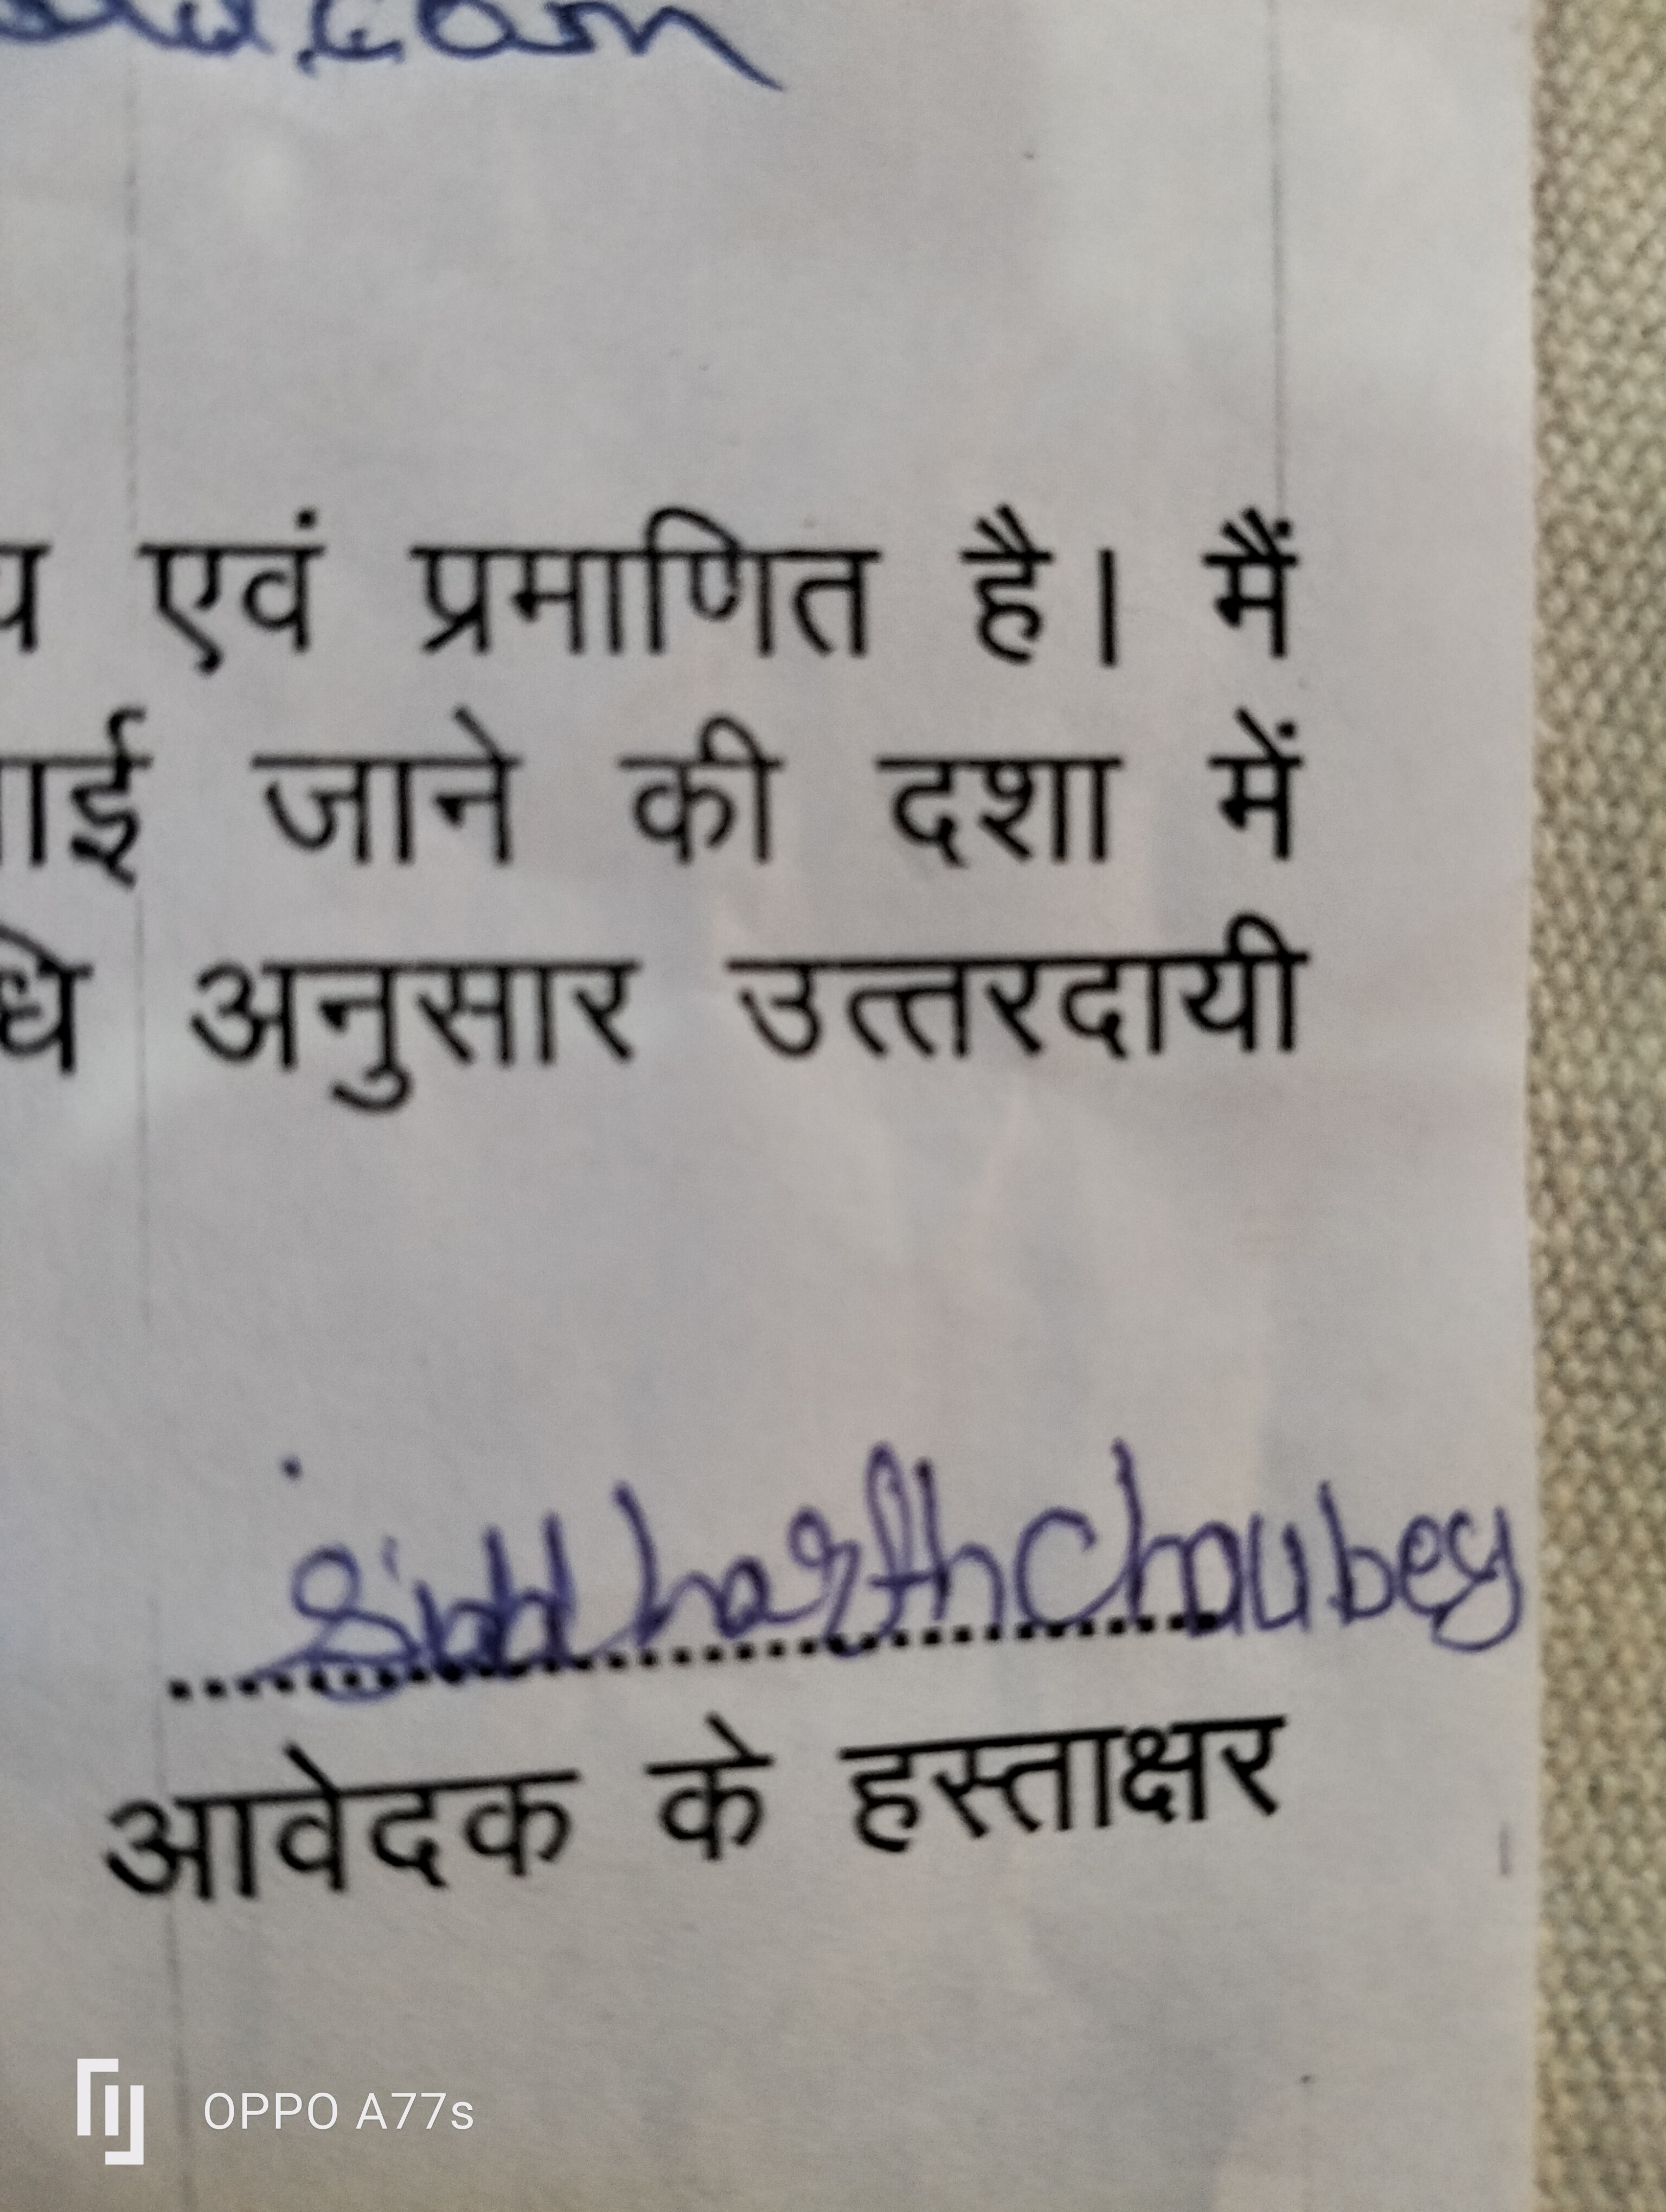 एवं प्रमाणित है। मैं
जाने की दशा में
अनुसार उत्तरदायी
Siddharth Chaubey
आवेदक के हस्ताक्षर
OPPO A77s